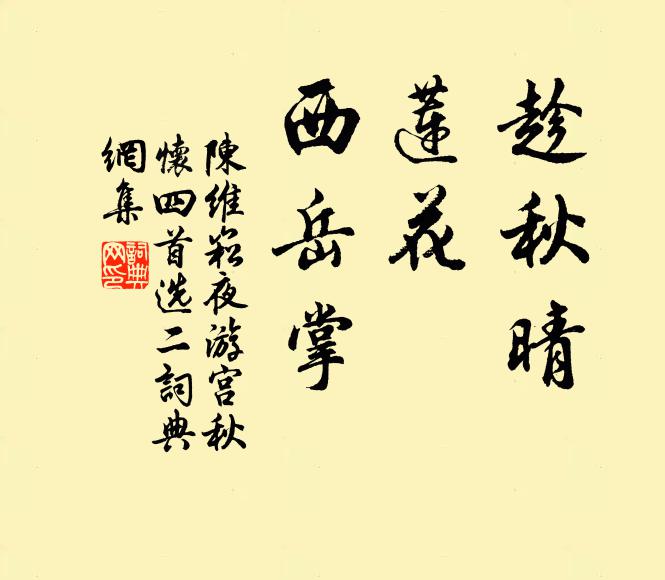 趁秋晴
蓮花
西岳掌
陳維崧夜游宫秋
懷四首选二詞典
網集
詞典
网印